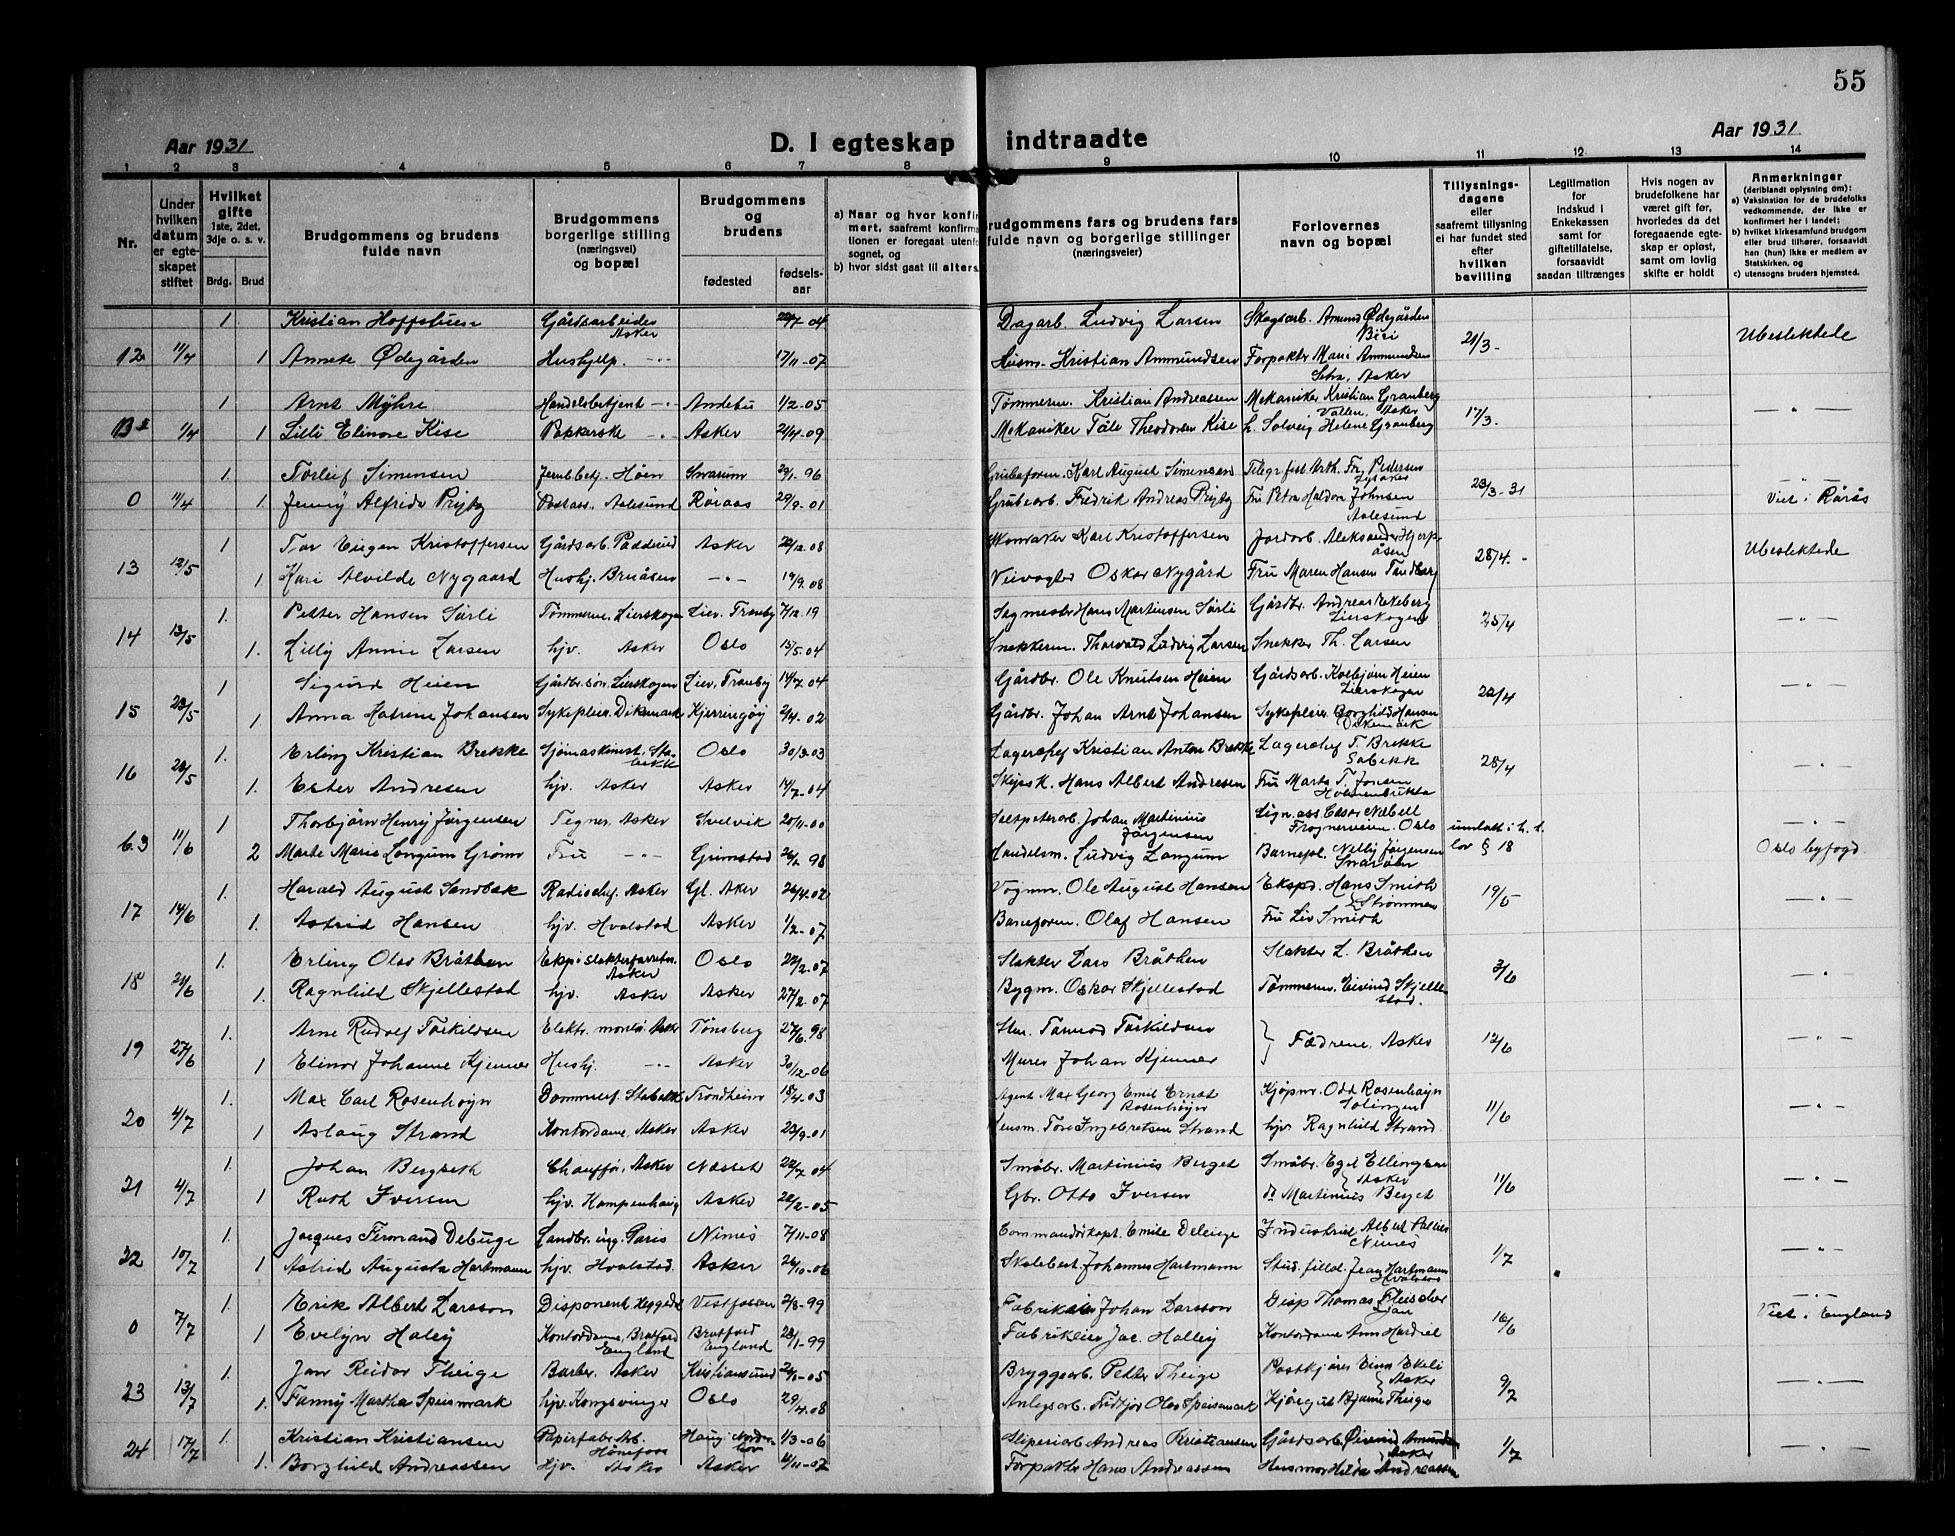 55
Aar 1931
D. I egteskap indtraadte
Aar 1931
1 2 3 4 5 6 7 8 9 10 11 12 13 14
Nr.
Under hvilken datum er egteskapet stiftet
Hvilket gifte 1ste, 2det, 3dje o. s. v.
Brdg. Brud
Brudgommens og brudens fulde navn
Brudgommens borgerlige stilling (næringsvei) og bopæl
Brudgommens og brudens
fødested
fødselsaar
a) Naar og hvor konfirmert, saafremt konfirmationen er foregaat utenfor sognet, og
b) hvor sidst gaat til alters.
Brudgommens fars og brudens fars fulde navn og borgerlige stillinger (næringsveier)
Forlovernes navn og bopæl
Tillysningsdagene eller saafremt tillysning ei har fundet sted efter hvilken bevilling
Legitimation for Indskud i Enkekassen samt for giftetillatelse, forsaavidt saadan tiltrænges
Hvis nogen av brudefolkene har været gift før, hvorledes da det foregaaende egteskap er opløst, samt om lovlig skifte er holdt
Anmerkninger (deriblandt oplysning om):
a) Vaksination for de brudefolks vedkommende, der ikke er konfirmert her i landet;
b) hvilket kirkesamfund brudgom eller brud tilhører, forsaavidt han (hun) ikke er medlem av Statskirken, og
c) utensogns bruders hjemsted.
1 Kristian Gårdsarbeider Asker 04 Dagarb. Ludvig Larsen Skogsarb. Amund Ødegården Biri
12 11/4 1 Annete Ødegården Hushjelp. -"- 17/11-07 Husm. Kristian Ammundsen Forpakter Asker 21/3- Ubeslektede
1 Arnt Myhre Handelsbetjent -"- Andebu 1/2-05 Tømmerm. Kristian Andreassen Mekaniker Kristian Granberg Vollen, Asker
1/4 1 Lilli Elinore Kise -"- Asker 21/4-09 Mekaniker Theodorsen Kise Solveig Helene Granberg 17/3. -"-
1. Torleif Simensen Høen 96 Karl August Simensen Pedersen Lysaker
0 11/4 1. Jenny Alfride Aalesund Røraas 29/9-01 Grubearb. Fredrik Andreas Fru Petra Johnsen Aalesund 23/3-31 Viet i Rørås
1 Tor Eugen Kristoffersen Gårdsarb. Padderud Asker 22/12.08 Skomaker Karl Kristoffersen Jordarb. Aleksander
13 12/5 1. Kari Alvilde Nygaard Hushj. Bruåsen -"- 14/9.08 Veivogter Oskar Nygård Fru Maren Hansen Tandberg 28/4.- Ubeslektede
1. Petter Hansen Sørli Tømmerm. Lierskogen Lier, Tranby 7/12.19 Sagmester Hans Martinsen Sørli Gårdbr. Andreas Ekeberg Lierskogen
14 13/5 1. Lilly Annie Larsen hjv. Asker Oslo 13/5.04 Snekkerm. Thorvald Ludvig Larsen Snekker Th. Larsen 25/4 -"-
1 Sigurd Heien Gårdbr.søn. Lierskogen Lier, Tranby 14/7.04 Gårdbr. Ole Knutsen Heien Gårdsarb. Kolbjørn Heien Lierskogen
15 23/5 1 Anna Katrine Johansen Sykepleier. Dikemark Kjerringøy 2/4-02 Gårdbr. Johan Arnt Johansen Sykepleier Borghild Hansen Dikemark 22/4 -"-
1. Erling Kristian Brekke Sjømaskinist. Stabekk Oslo 30/3.03 Lagersjef Kristian Anton Brekke Lagersjef T. Brekke
16 23/5 1. Ester Andresen hjv. Asker Asker 14/7-04 Hans Albert Andresen Fru Marta T. Jonsen 28/4 -"-
1 Thorbjørn Henry Jørgensen Tegner, Asker Svelvik 20/11-00 Johan Martinius Jørgensen Frognerveien, Oslo
11/6 2 Marte Marie Longum Grønn Fru -"- Grimstad 98 Handelsm. Ludvig Longum Nelly Jørgensen Snarøen lov § 18 -"- Oslo byfogd.
1. Harald August Sandbæk Asker Gl. Aker 26/4-02 Vognm. Ole August Hansen Eksp. Hans Smith Strømmen
17 14/6 1. Astrid Hansen hjv. Hvalstad Asker 1/2-07 Baneform. Olaf Hansen Fru Liv Smith 19/5 -"-
1. Erling Olav Bråthen Asker Oslo 22/2-07 Slakter Lars Bråthen Slakter L. Bråthen
18 21/6 1. Ragnhild Skjellestad hjv. Asker Asker 27/2.07 Bygm. Oskar Skjellestad Tømmerm. Eivind Skjellestad. 3/6 -"-
1. Arne Rudolf Torkildsen Elektr. montør Asker Tønsberg 27/6.98 Torkildsen } Fædrene, Asker
19 27/6 1 Elinor Johanne Kjenner Hushj. -"- Asker 30/12-06 Murer Johan Kjenner 12/6 -"-
1. Max Carl Rosenhøyn Stabekk Trondheim 18/4-03 Agent Max Georg Emil Ernst Rosenhøyn Kjøpm. Odd Rosenhøyn Solingen
20 4/7 1 Aslaug Strand Kontordame, Asker Asker 23/9-01 Lensm. Tore Ingebretsen Strand hjv. Ragnhild Strand. 11/6 -"-
1. Johan Bergseth Chauffør, Asker Nesset 22/7 04 Småbr. Martinius Berget Småbr. Egil Ellingsen Asker
21 4/7 1 Ruth Iversen hjv. Kampenhaug Asker 22/2-05 Gbr. Otto Iversen Martinius Berget 11/6 -"-
1. Jacques Fermand Debuge Landbr. ing. Paris Nimes 7/11-08 Commandørkapt. Emile Industriel Albert Nimes
22 10/7 1 Astrid Augusta Hartmann hjv. Hvalstad. Asker 26/10-06 Skolebest. Johannes Hartmann Stud. filol. Jean Hartmann Hvalstad 1/7 -"-
1. Erik Albert Larsson Disponent, Heggedal Vestfossen 2/8-99 Johan Larsson Disp Thomas Fleischer -"-
0 7/7 1 Evelyn Haley Kontordame, Bratford England Bratford England 23/1-99 Fabrikeier Jac. Halley Kontordame Ann 16/6 Viet i England
1. Jan Reidar Theige Barber. Asker Kristiansund 05 Bryggearb. Petter Theige Postkjører Einar Ekeli Asker
23 13/7 1. Fanny Martha Speismark hjv. Kongsvinger Oslo 29/4.08 Anlegsarb. Fridtjof Olav Speisemark Bjarne Theige 9/7 -"-
1. Kristian Kristiansen Papirfabr.Arb. Hønefoss Haug 1/3-06 Sliperiarb Andreas Kristiansen Gårdsarb. Øivind Amundsen Asker
24 17/7 1. Borghild Andreassen Hjv. Asker Asker 11/11-07 Forpakter Hans Andreassen Husmor Hilda Andreassen 1/7 -"-